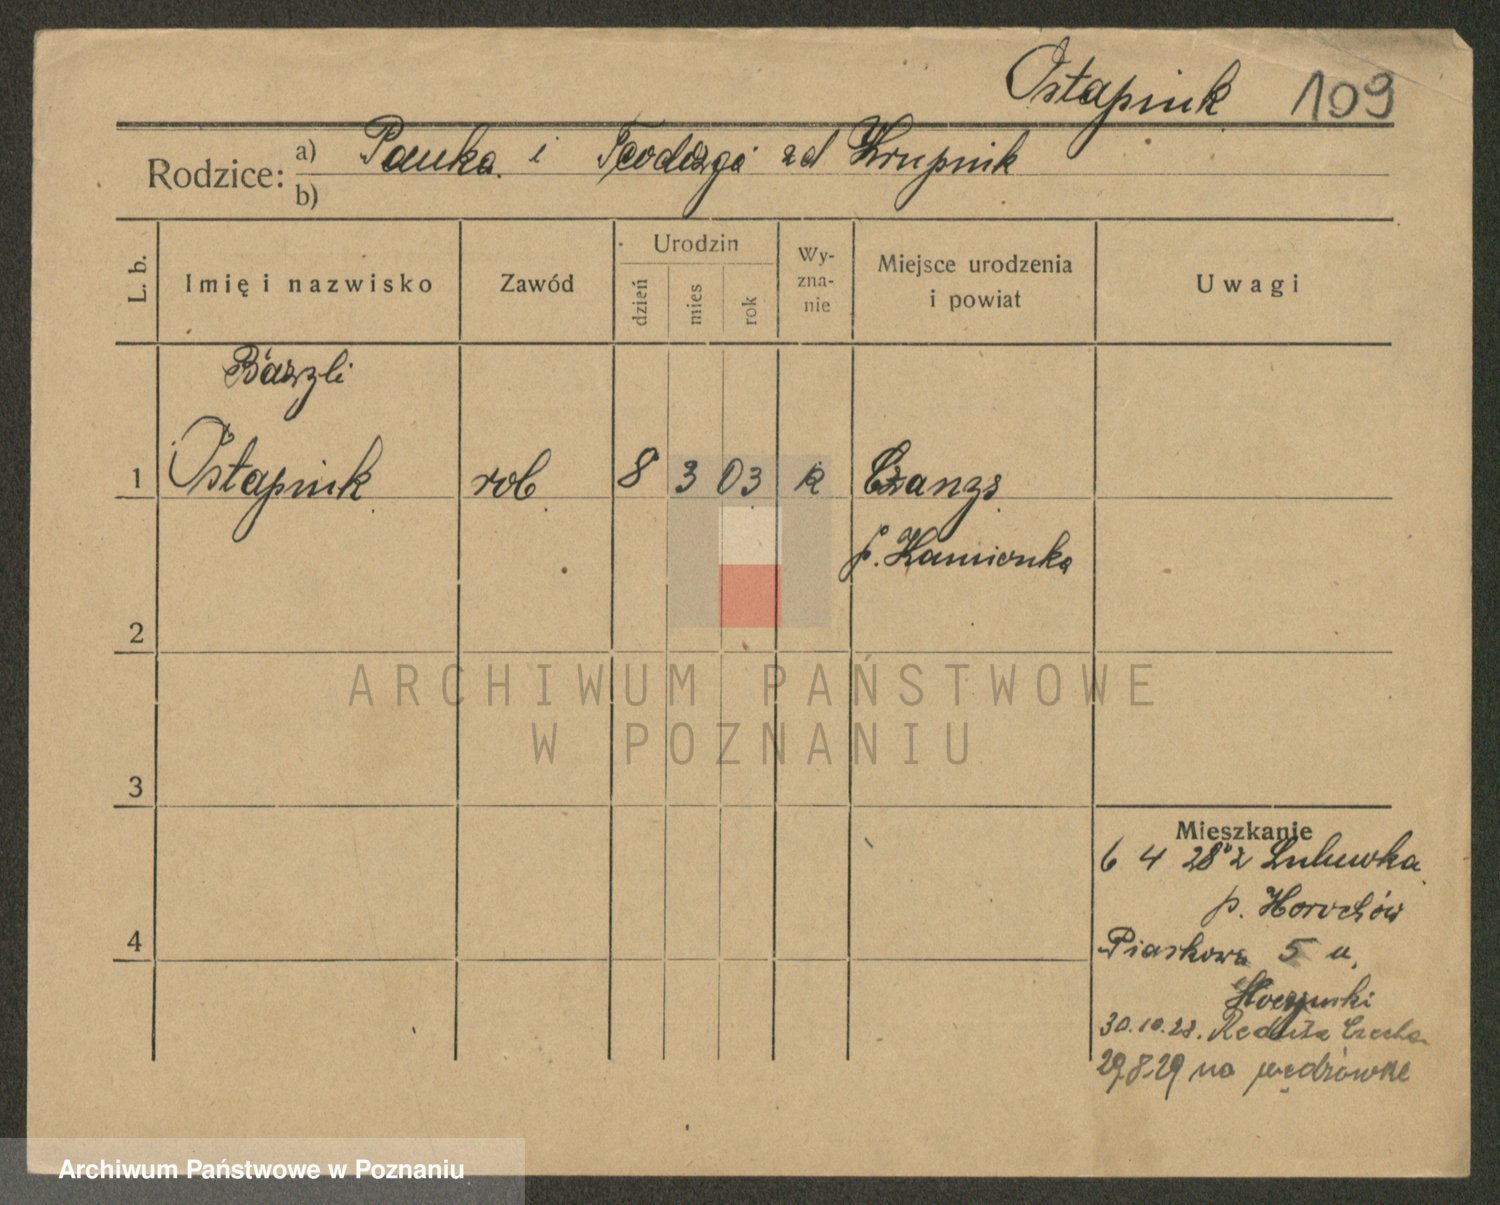 Ostapiuk 109
Rodzice: a) Pauka i Teodozja zd Krupnik
b)
L. b. Imię i nazwisko Zawód Urodzin dzień mies rok Wy-zna-nie Miejsce urodzenia i powiat Uwagi
Bazyli
1 Ostapiuk rob 8 3 03 p. Kamionka
2
3
4
Mieszkanie
6 4 28 z
p. Horochów
Piaskowa 5 u
30.10.28. Reduta Czecha
29.8.29 na wędrówkę
ARCHIWUM PAŃSTWOWE
W POZNANIU
Archiwum Państwowe w Poznaniu